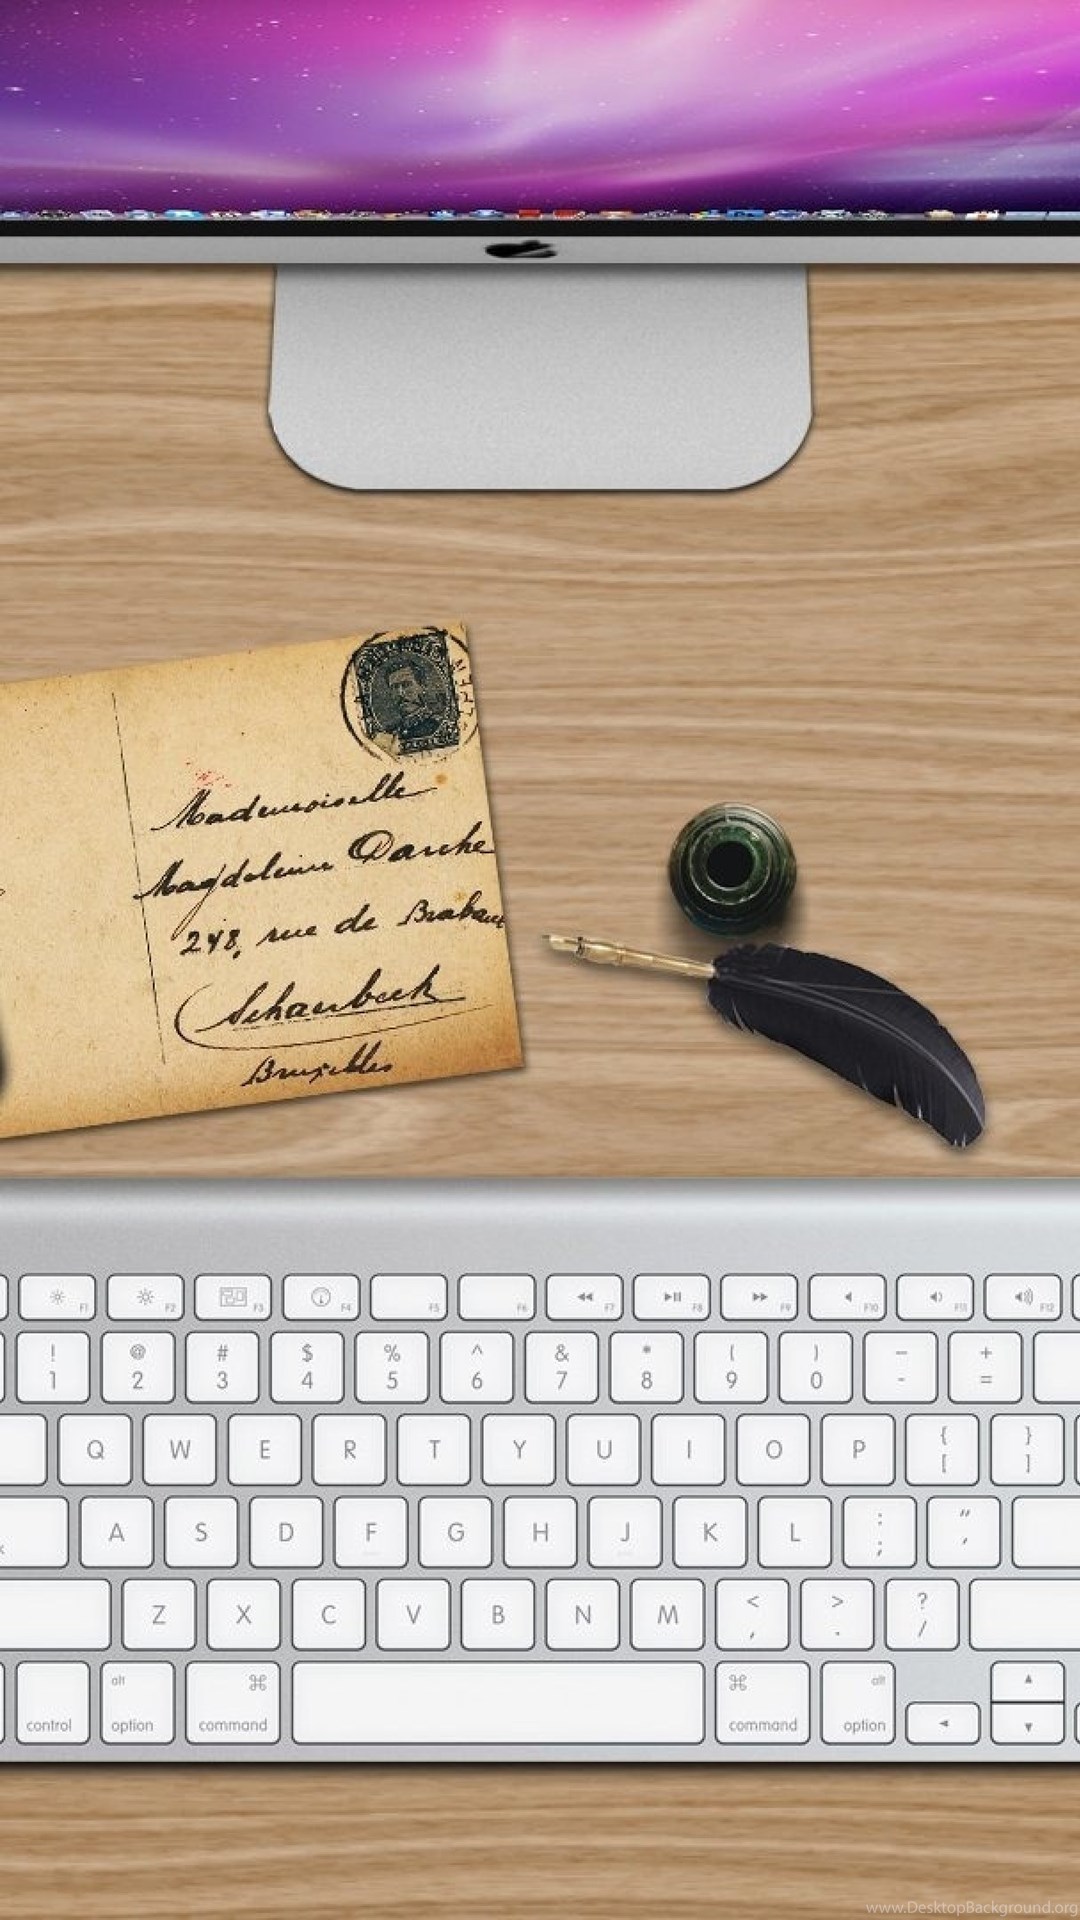 Mademoiselle
Magdeleine Darche
248, rue de Brabant
Schaerbeek
Bruxelles
F1 F2 F3 F4 F5 F6 F7 F8 F9 F10 F11 F12
! @ # $ % ^ & * ( ) – +
1 2 3 4 5 6 7 8 9 0 - =
Q W E R T Y U I O P { }
[ ]
A S D F G H J K L : "
; ,
Z X C V B N M < > ?
, . /
alt ⌘ ⌘ alt
control option command command option
www.DesktopBackground.org